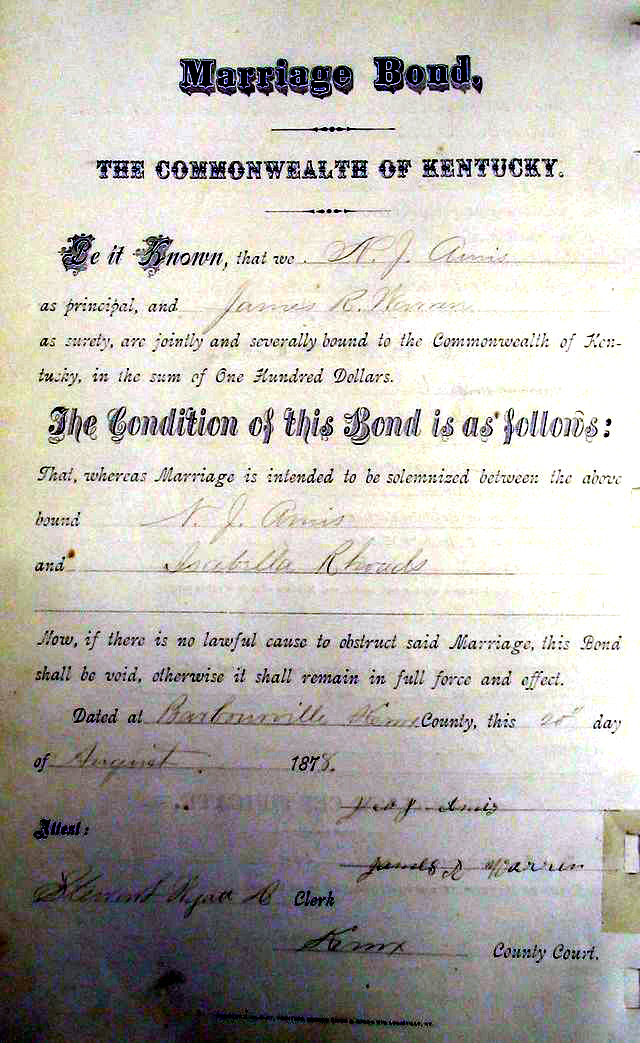 Marriage Bond,
THE COMMONWEALTH OF KENTUCKY.
Be it Known, that we N. J. Amis
as principal, and James R. Warran
as surety, are jointly and severally bound to the Commonwealth of Ken-
tucky, in the sum of One Hundred Dollars.
The Condition of this Bond is as follows:
That, whereas Marriage is intended to be solemnized between the above
bound N. J. Amis
and Isabella Rhoads
Now, if there is no lawful cause to obstruct said Marriage, this Bond
shall be void, otherwise it shall remain in full force and effect.
Dated at Barbourville Knox County, this 20th day
of August 1878.
J. Amis
Attest:
James R Warren
Clerk
Knox County Court.